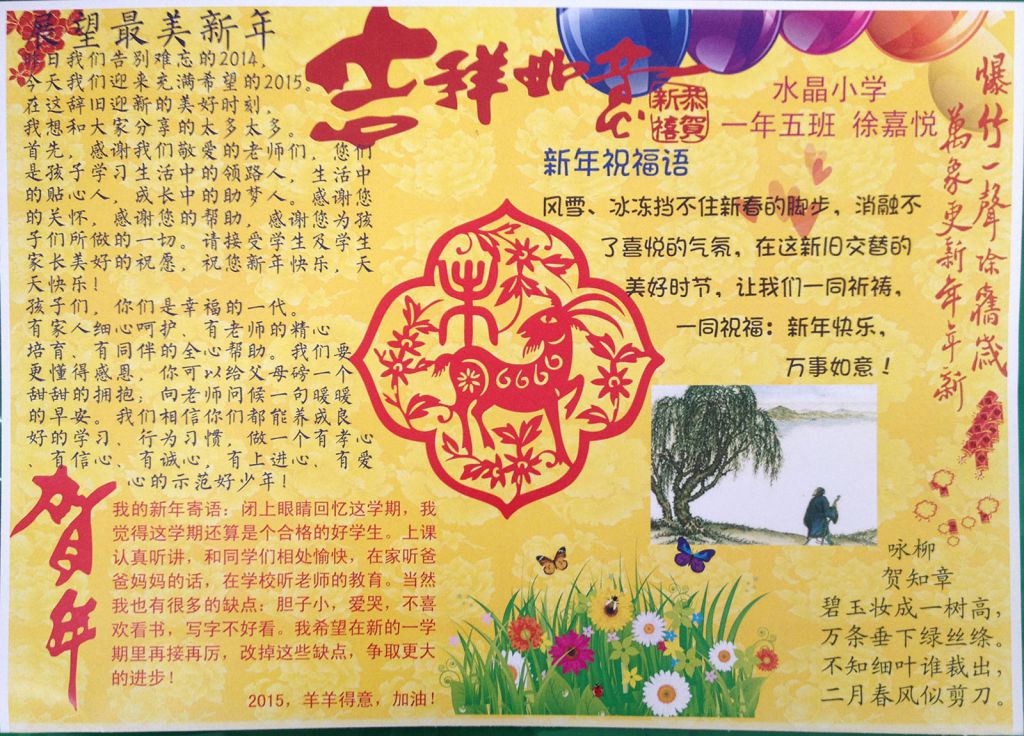 展望最美新年
昨日我们告别难忘的2014，
今天我们迎来充满希望的2015。
在这辞旧迎新的美好时刻，
我想和大家分享的太多太多。
首先，感谢我们敬爱的老师们，您们
是孩子学习生活中的领路人，生活中
的贴心人，成长中的助梦人。感谢您
的关怀，感谢您的帮助，感谢您为孩
子们所做的一切。请接受学生及学生
家长美好的祝愿，祝您新年快乐，天
天快乐！
孩子们，你们是幸福的一代。
有家人细心呵护、有老师的精心
培育、有同伴的全心帮助。我们要
更懂得感恩，你可以给父母磅一个
甜甜的拥抱；向老师问候一句暖暖
的早安。我们相信你们都能养成良
好的学习、行为习惯，做一个有孝心
、有信心、有诚心，有上进心、有爱
心的示范好少年！
吉祥如意
恭贺
新禧
水晶小学
一年五班 徐嘉悦
爆竹一聲除舊歲
萬象更新年年新
新年祝福语
风雪、冰冻挡不住新春的脚步，消融不
了喜悦的气氛，在这新旧交替的
美好时节，让我们一同祈祷，
一同祝福：新年快乐，
万事如意！
贺年
我的新年寄语：闭上眼睛回忆这学期，我
觉得这学期还算是个合格的好学生。上课
认真听讲，和同学们相处愉快，在家听爸
爸妈妈的话，在学校听老师的教育。当然
我也有很多的缺点：胆子小，爱哭，不喜
欢看书，写字不好看。我希望在新的一学
期里再接再厉，改掉这些缺点，争取更大
的进步！
2015，羊羊得意，加油！
咏柳
贺知章
碧玉妆成一树高，
万条垂下绿丝绦。
不知细叶谁裁出，
二月春风似剪刀。